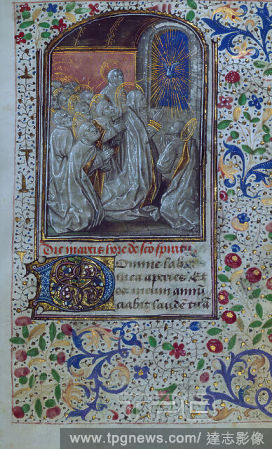 Die martis hore de sco spiritu
Domine labia
mea aperies. Et
os meum annū
ciabit laudem tuā
www.tpgnews.com/ 達志影像